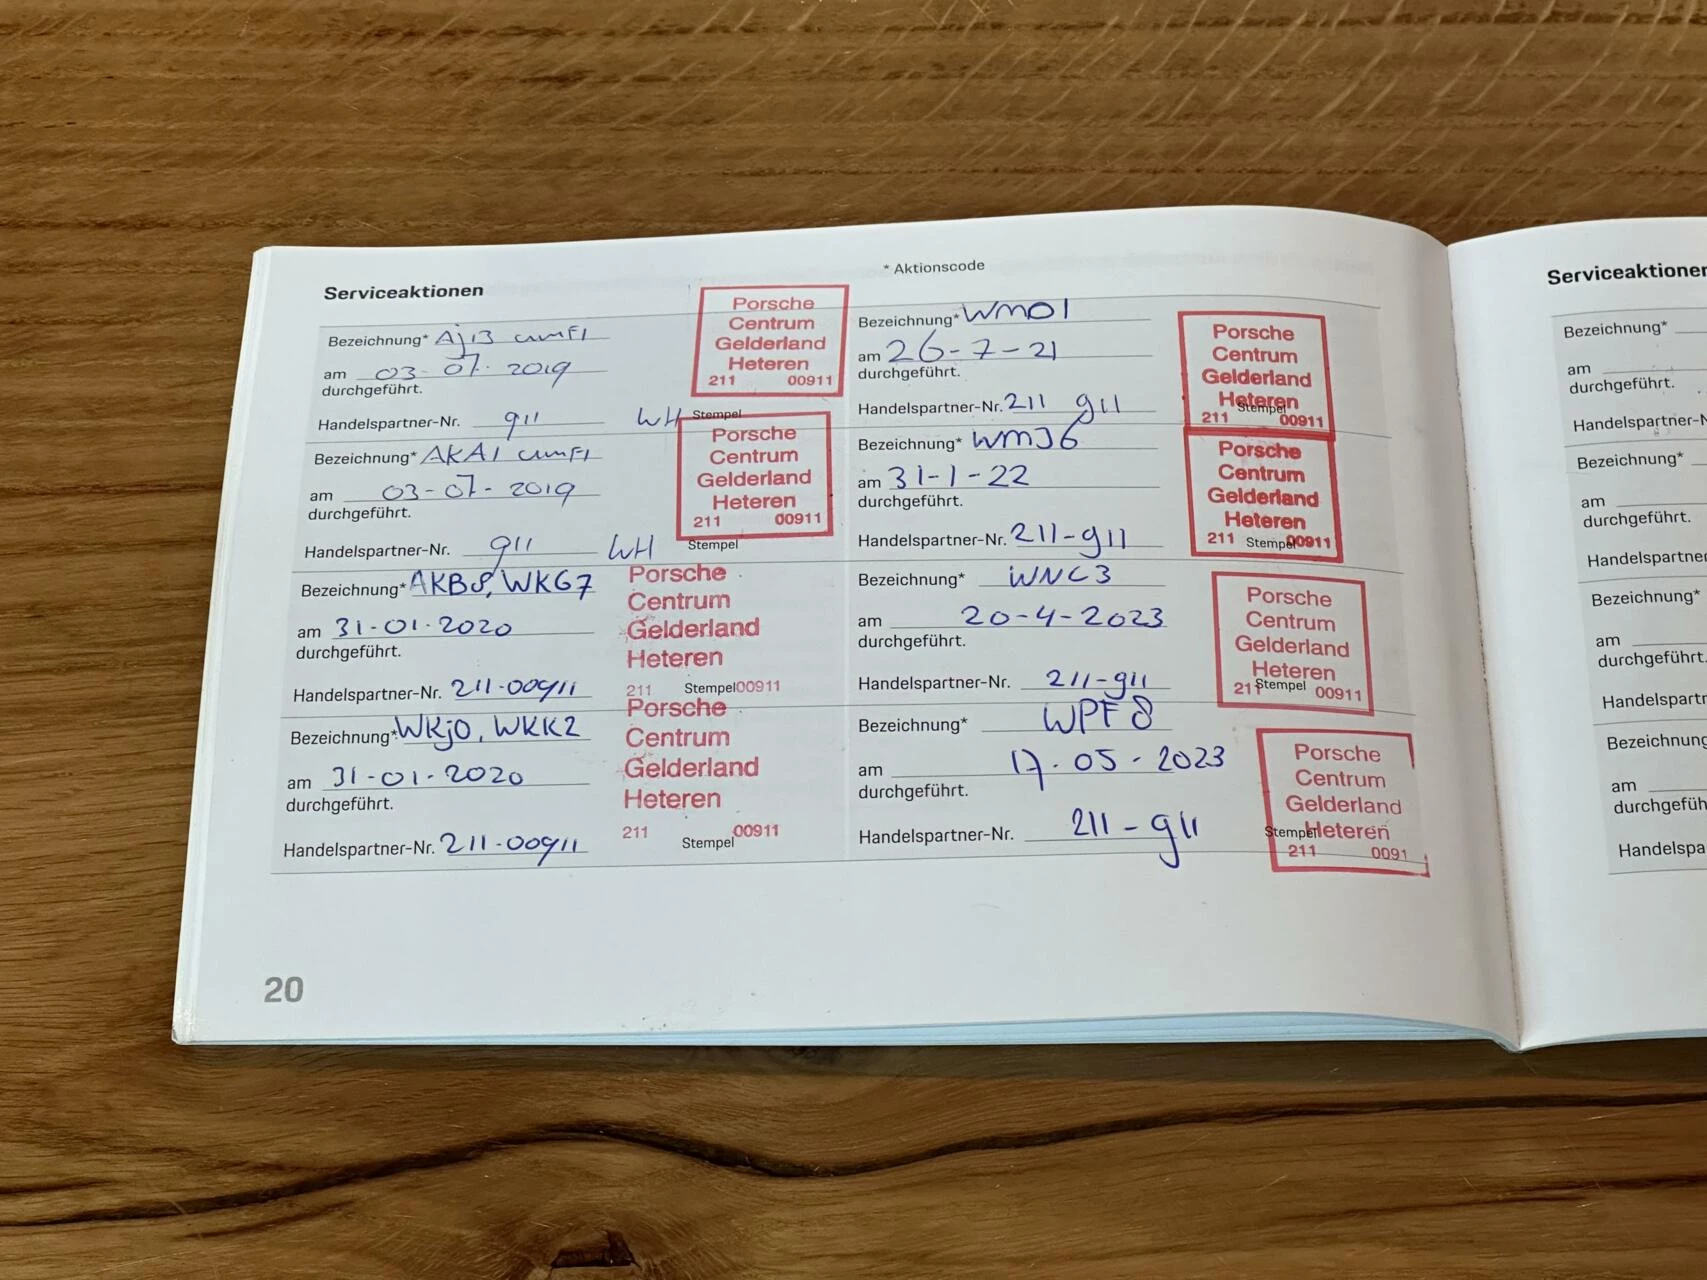 Serviceaktionen
* Aktionscode
Bezeichnung* Aj13
am 03-07-2019
durchgeführt.
Handelspartner-Nr. 911 WH Stempel
Porsche
Centrum
Gelderland
Heteren
211 00911
Bezeichnung* AKA1
am 03-07-2019
durchgeführt.
Handelspartner-Nr. 911 WH Stempel
Porsche
Centrum
Gelderland
Heteren
211 00911
Bezeichnung* AKB8, WKG7
am 31-01-2020
durchgeführt.
Handelspartner-Nr. 211-00911
Porsche
Centrum
Gelderland
Heteren
211 Stempel 00911
Bezeichnung* WKj0, WKK2
am 31-01-2020
durchgeführt.
Handelspartner-Nr. 211-00911
Porsche
Centrum
Gelderland
Heteren
211 Stempel 00911
Bezeichnung* WMO1
am 26-7-21
durchgeführt.
Handelspartner-Nr. 211 911
Porsche
Centrum
Gelderland
Heteren
Stempel
211 00911
Bezeichnung* WMJ6
am 31-1-22
durchgeführt.
Handelspartner-Nr. 211-911
Porsche
Centrum
Gelderland
Heteren
211 Stempel 00911
Bezeichnung* WNC3
am 20-4-2023
durchgeführt.
Handelspartner-Nr. 211-911
Porsche
Centrum
Gelderland
Heteren
211 Stempel 00911
Bezeichnung* WPF8
am 17-05-2023
durchgeführt.
Handelspartner-Nr. 211-911
Porsche
Centrum
Gelderland
Stempel Heteren
211 0091
20
Serviceaktionen
Bezeichnung*
am
durchgeführt.
Handelspartner-N
Bezeichnung*
am
durchgeführt.
Handelspartner
Bezeichnung*
am
durchgeführt.
Handelspartn
Bezeichnung
am
durchgefüh
Handelspa